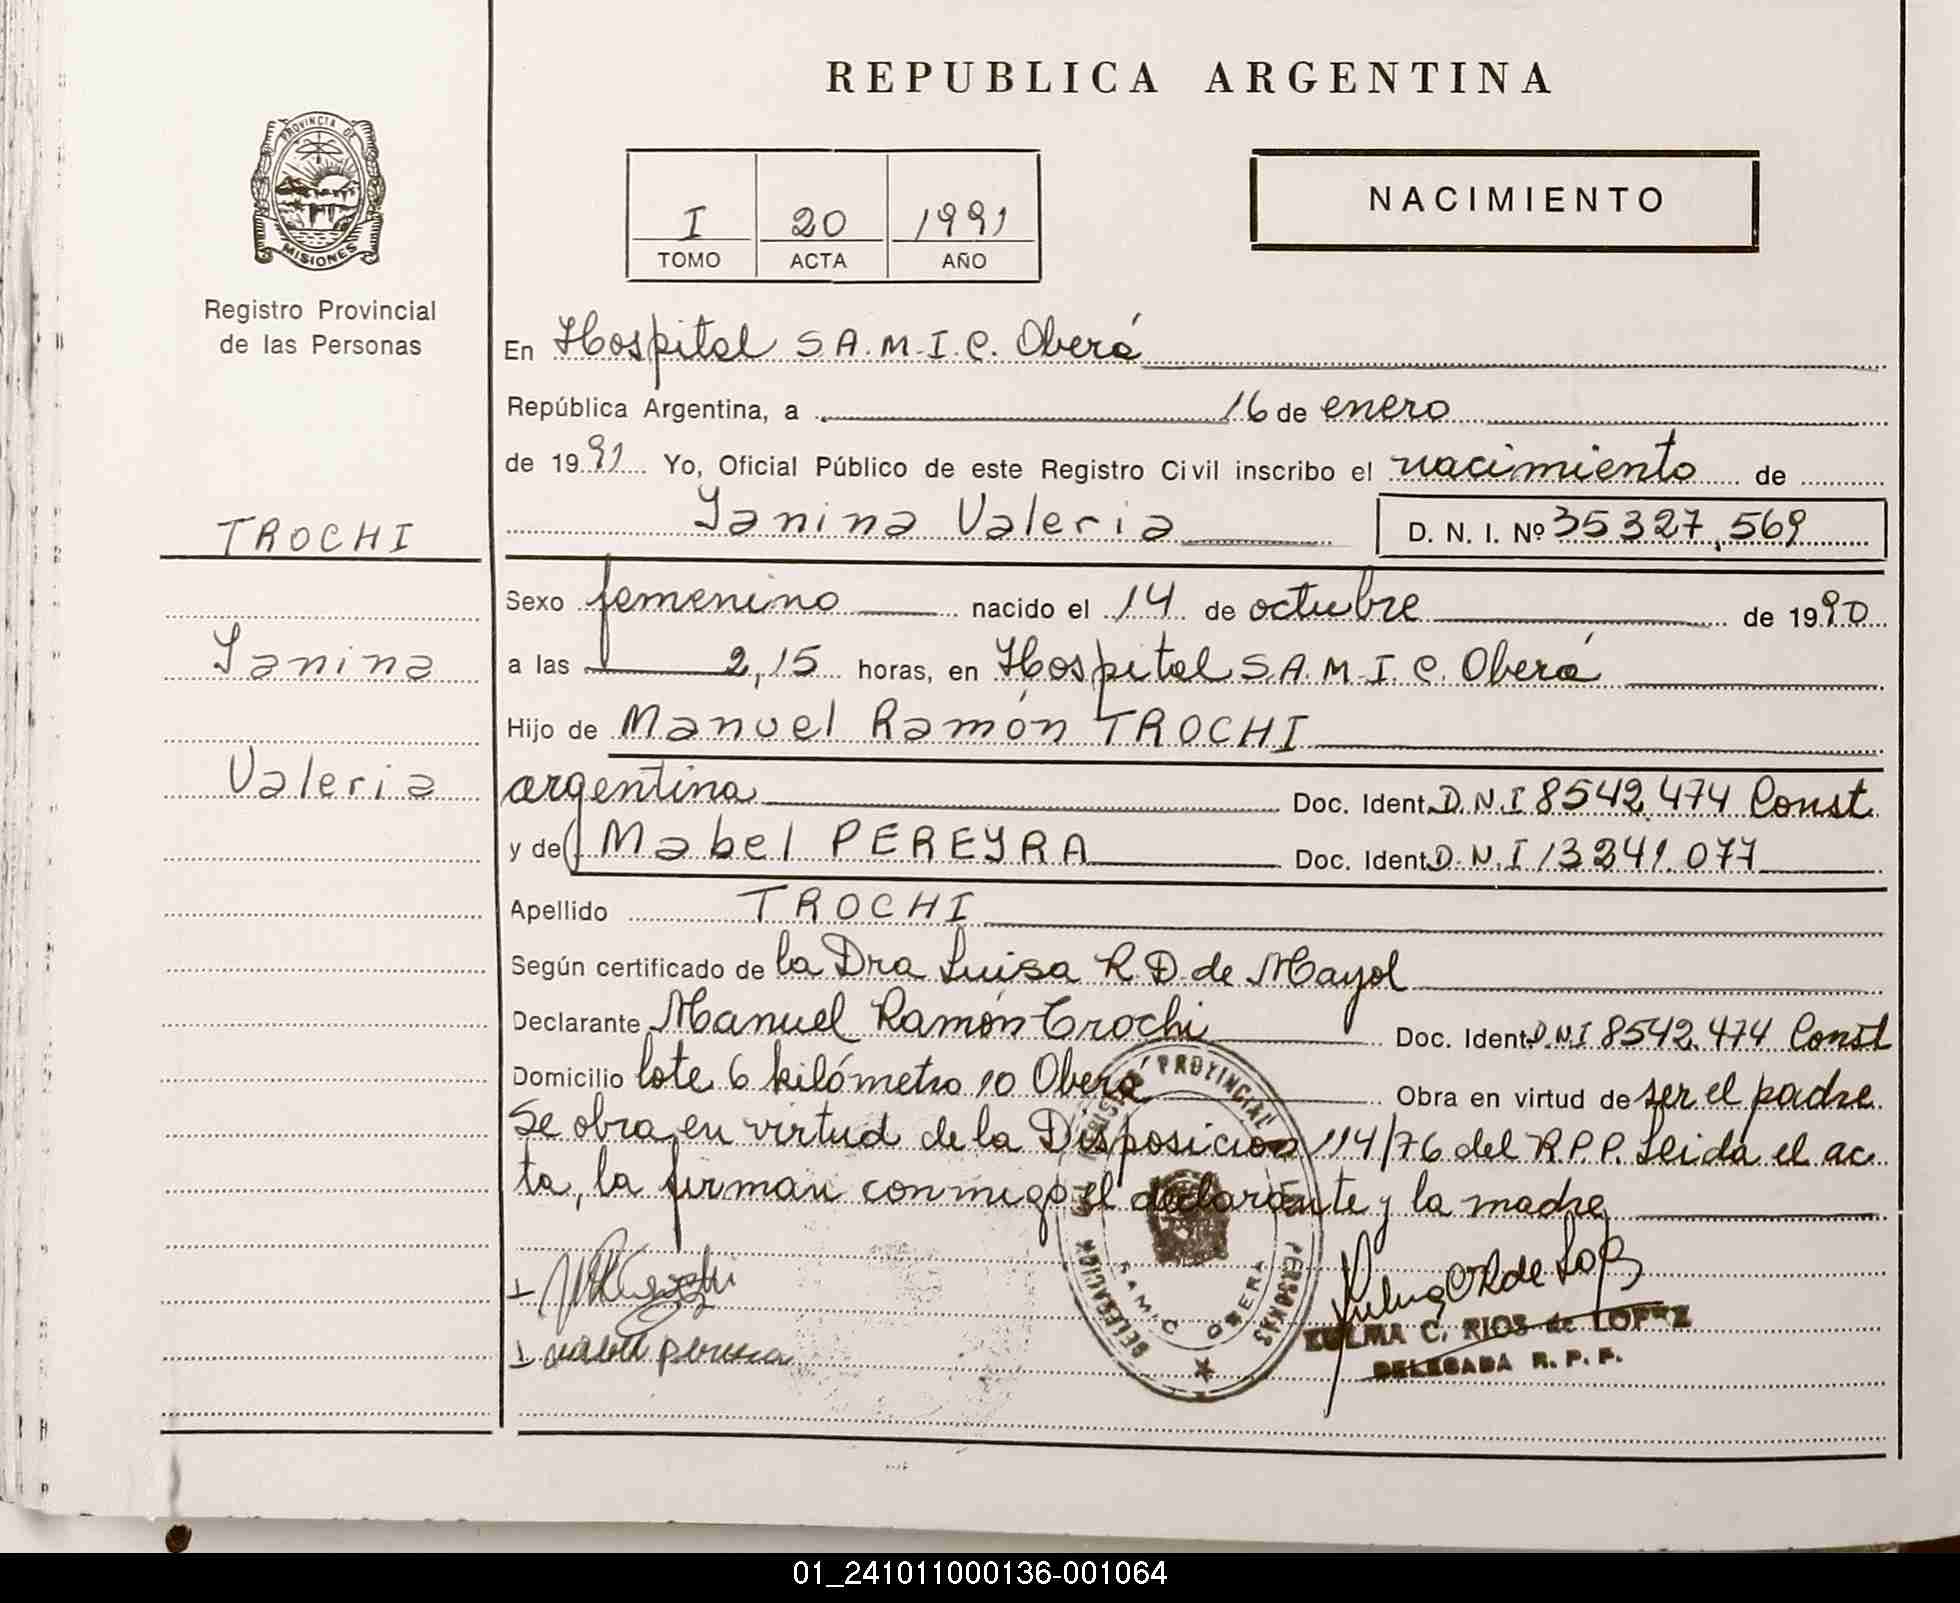 REPUBLICA ARGENTINA
PROVINCIA DE
MISIONES
Registro Provincial
de las Personas
I 20 1991
TOMO ACTA AÑO
NACIMIENTO
En Hospital S.A.M.I.C. Oberá
República Argentina, a 16 de enero
de 1991 Yo, Oficial Público de este Registro Civil inscribo el nacimiento de
Yanina Valeria D. N. I. Nº 35327.569
TROCHI
Sexo femenino nacido el 14 de octubre de 1990
Yanina
a las 2,15 horas, en Hospital S.A.M.I.C. Oberá
Hijo de Manuel Ramón TROCHI
Valeria
argentina Doc. Ident. D.N.I 8542.474 Const.
y de Mabel PEREYRA Doc. Ident. D.N.I 13241.077
Apellido TROCHI
Según certificado de la Dra Luisa R.D. de Mayol
Declarante Manuel Ramón Trochi Doc. Ident. D.N.I 8542.474 Const
Domicilio lote 6 kilómetro 10 Oberá Obra en virtud de ser el padre
Se obra en virtud de la Disposicion 114/76 del R.P.P. Leida el ac
ta, la firman conmigo el declarante y la madre
PROVINCIAL
PERSONAS
DELEGACION
SAMIC OBERA
ZULMA C. RIOS de LOPEZ
DELEGADA R. P. P.
01_241011000136-001064